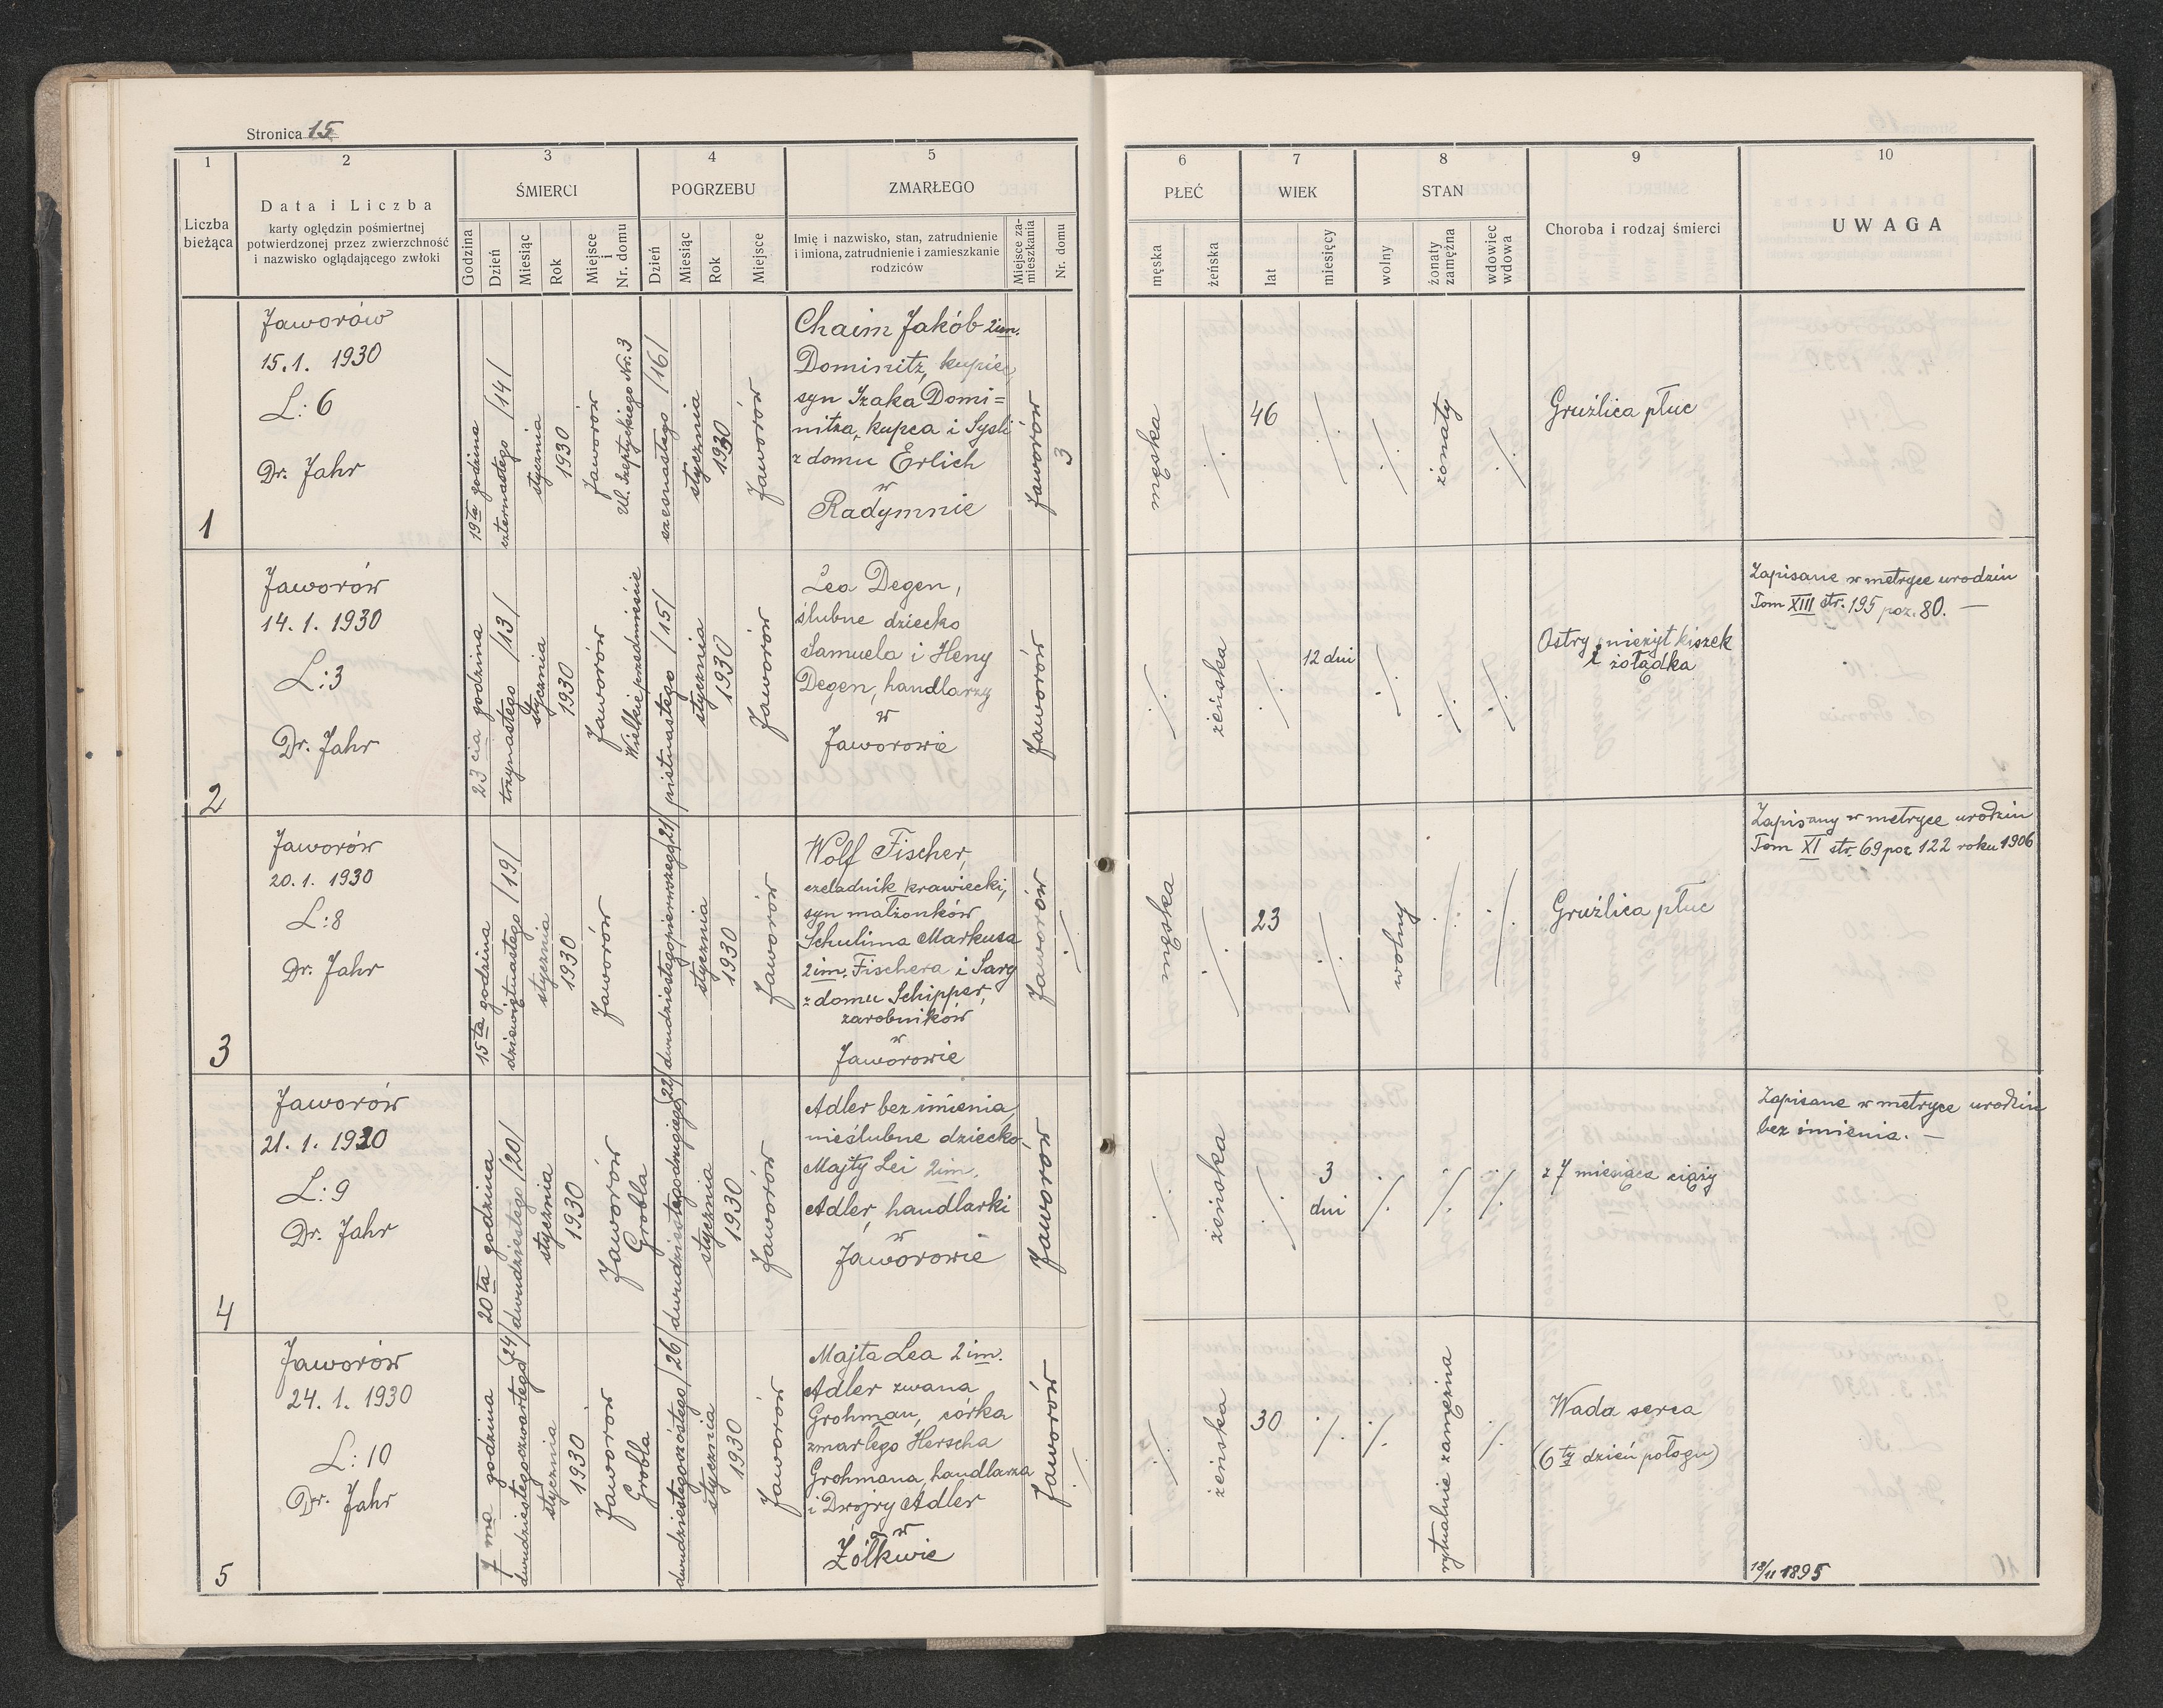 Stronica 15
1
2
3
4
5
Liczba
bieżąca
Data i Liczba
karty oględzin pośmiertnej
potwierdzonej przez zwierzchność
i nazwisko oglądającego zwłoki
ŚMIERCI
Godzina
Dzień
Miesiąc
Rok
Miejsce
i
Nr. domu
POGRZEBU
Dzień
Miesiąc
Rok
Miejsce
ZMARŁEGO
Imię i nazwisko, stan, zatrudnienie
i imiona, zatrudnienie i zamieszkanie
rodziców
Miejsce za-
mieszkania
Nr. domu
6
7
8
9
10
PŁEĆ
męska
żeńska
WIEK
lat
miesięcy
STAN
wolny
żonaty
zamężna
wdowiec
wdowa
Choroba i rodzaj śmierci
UWAGA
1
Jaworów
15. 1. 1930
L: 6
Dr. Jahr
19ta godzina
czternastego /14/
stycznia
1930
Jaworów
Ul. Szeptyckiego Nr. 3
szesnastego /16/
stycznia
1930
Jaworów
Chaim Jakób 2im.
Dominitz, kupiec,
syn Izaka Domi=
nitza, kupca i Sysli
z domu Erlich
w
Radymnie
Jaworów
3
męska
46
żonaty
Gruźlica płuc
2
Jaworów
14. 1. 1930
L: 3
Dr. Jahr
23cia godzina
trzynastego /13/
stycznia
1930
Jaworów
Wielkie przedmieście
piętnastego /15/
stycznia
1930
Jaworów
Lea Degen,
ślubne dziecko
Samuela i Heny
Degen, handlarzy
w
Jaworowie
Jaworów
żeńska
12 dni
Ostry nieżyt kiszek
i żołądka
Zapisane w metryce urodzin
Tom XIII str. 195 poz. 80. —
3
Jaworów
20. 1. 1930
L: 8
Dr. Jahr
15ta godzina
dziewiętnastego /19/
stycznia
1930
Jaworów
dwudziestegopierwszego /21/
stycznia
1930
Jaworów
Wolf Fischer,
czeladnik krawiecki,
syn małżonków
Schulima Markusa
2im. Fischera i Sary
z domu Schipper,
zarobników
w
Jaworowie
Jaworów
męska
23
wolny
Gruźlica płuc
Zapisany w metryce urodzin
Tom XI str. 69 poz 122 roku 1906
4
Jaworów
21. 1. 1930
L: 9
Dr. Jahr
20ta godzina
dwudziestego /20/
stycznia
1930
Jaworów
Grobla
dwudziestegodrugiego /22/
stycznia
1930
Jaworów
Adler bez imienia,
nieślubne dziecko
Majty Lei 2im.
Adler, handlarki
w
Jaworowie
Jaworów
żeńska
3
dni
z 7 miesiąca ciąży
Zapisane w metryce urodzin
bez imienia. —
5
Jaworów
24. 1. 1930
L: 10
Dr. Jahr
7ma godzina
dwudziestegoczwartego /24/
stycznia
1930
Jaworów
Grobla
dwudziestegoszóstego /26/
stycznia
1930
Jaworów
Majta Lea 2im.
Adler zwana
Grohman, córka
zmarłego Herscha
Grohmana, handlarza
i Dwojry Adler
w
Żółkwie
Jaworów
żeńska
30
rytualnie zamężna
Wada serca
(6ty dzień połogu)
18/11 1895